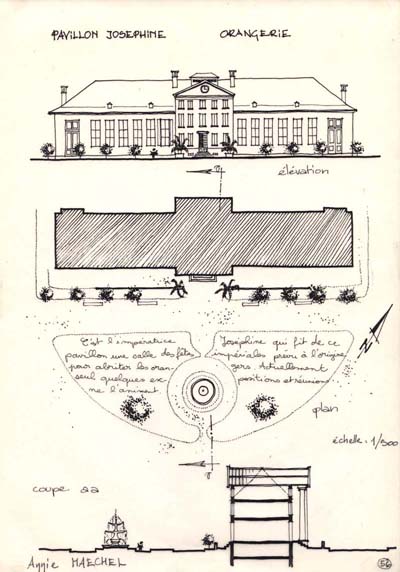 PAVILLON JOSEPHINE ORANGERIE
élévation
C'est l'impératrice Joséphine qui fit de ce
pavillon une salle des fêtes impériales prévu à l'origine
pour abriter les oran- gers. Actuellement
seul quelques ex- positions et réunions
ne l'animent.
N
plan
échelle: 1/500
coupe aa
Annie MAECHEL